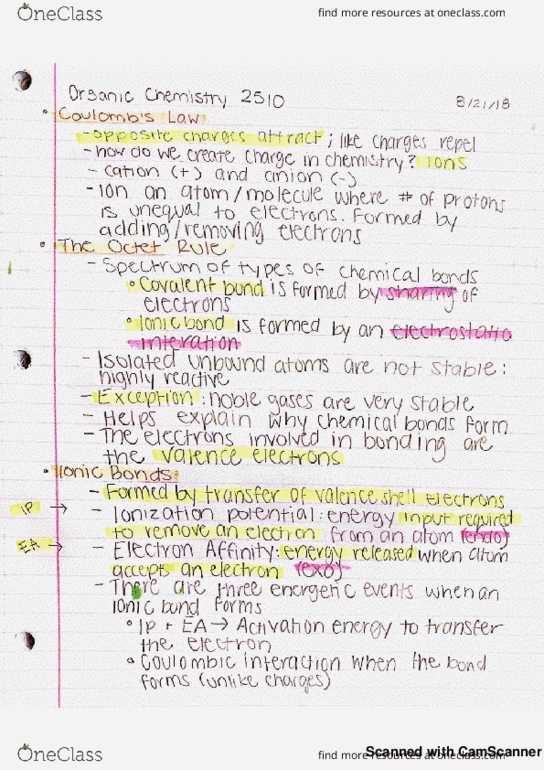 OneClass
find more resources at oneclass.com
Organic Chemistry 2510
8/21/18
• Coulomb's Law
- opposite charges attract ; like charges repel
- how do we create charge in chemistry? Ions
- cation (+) and anion (-)
- Ion an atom/molecule where # of protons
is unequal to electrons. Formed by
adding/removing electrons
• The Octet Rule
- Spectrum of types of chemical bonds
• Covalent bond is formed by sharing of
electrons
• Ionic bond is formed by an electrostatic
interation
- Isolated unbound atoms are not stable :
highly reactive
- Exception : noble gases are very stable
- Helps explain why chemical bonds form
- The electrons involved in bonding are
the valence electrons
• Ionic Bonds
- Formed by transfer of valence shell electrons
IP → - Ionization potential : energy input required
to remove an electron from an atom (endo)
EA → - Electron Affinity: energy released when atom
accepts an electron (exo)
- There are three energetic events when an
ionic bond forms
• IP + EA → Activation energy to transfer
the electron
• Coulombic interaction when the bond
forms (unlike charges)
OneClass
find more resources at oneclass.com
Scanned with CamScanner